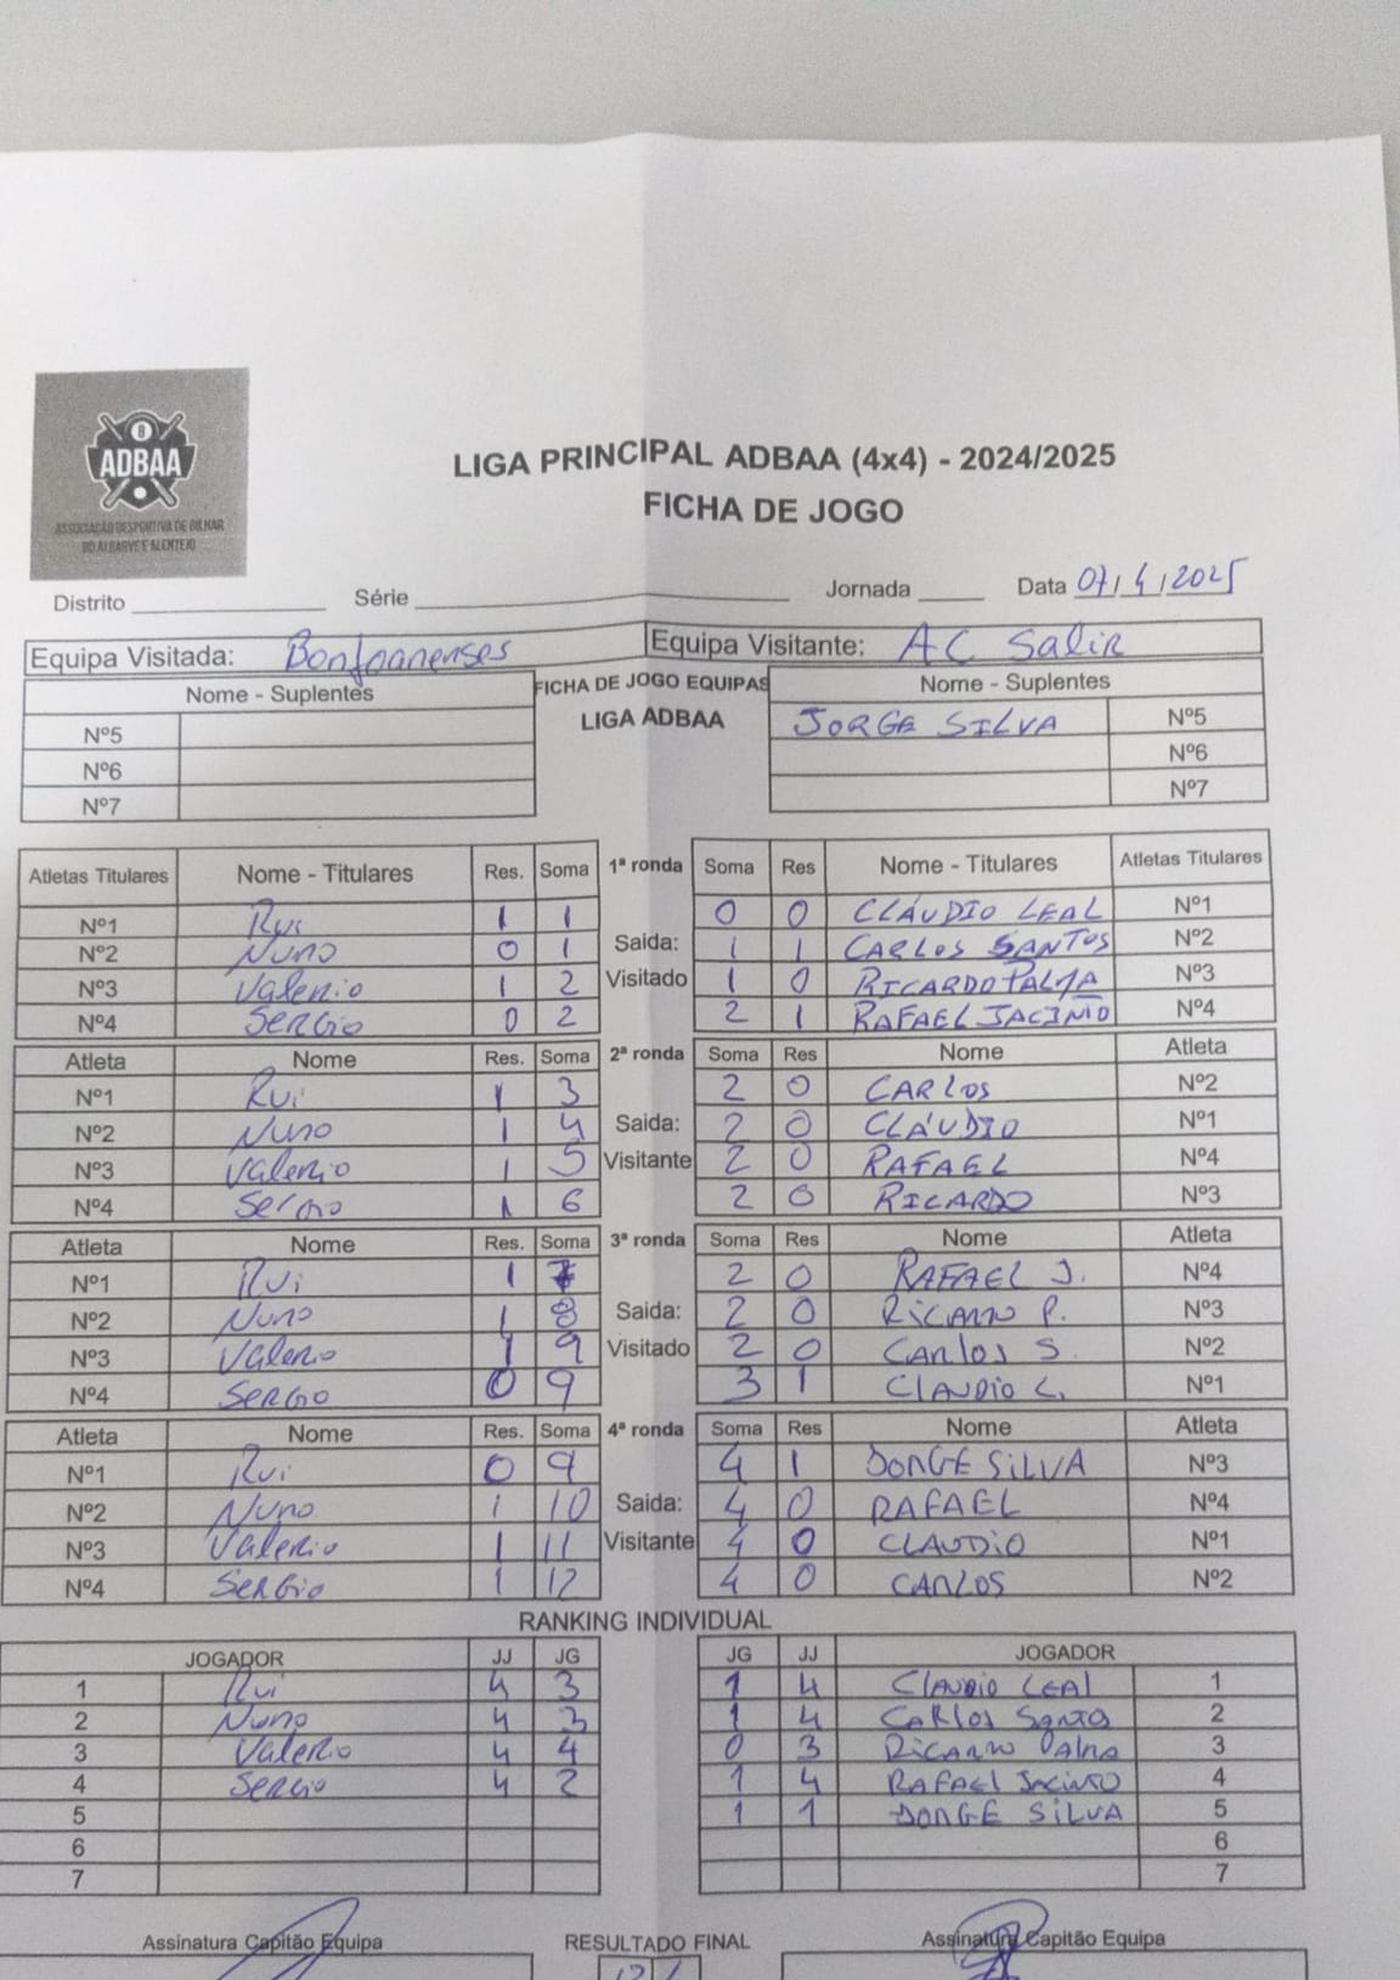 8
ADBAA
ASSOCIAÇÃO DESPORTIVA DE BILHAR
DO ALGARVE E ALENTEJO
LIGA PRINCIPAL ADBAA (4x4) - 2024/2025
FICHA DE JOGO
Distrito Série Jornada Data 07/4/2025
Equipa Visitada: Bonjoanenses Equipa Visitante: AC Salir
Nome - Suplentes FICHA DE JOGO EQUIPAS Nome - Suplentes
Nº5 LIGA ADBAA JORGE SILVA Nº5
Nº6 Nº6
Nº7 Nº7
Atletas Titulares Nome - Titulares Res. Soma 1ª ronda Soma Res Nome - Titulares Atletas Titulares
Nº1 Rui 1 1 0 0 CLÁUDIO LEAL Nº1
Nº2 Nuno 0 1 Saida: 1 1 CARLOS SANTOS Nº2
Nº3 Valerio 1 2 Visitado 1 0 RICARDO PALMA Nº3
Nº4 Sergio 0 2 2 1 RAFAEL JACINTO Nº4
Atleta Nome Res. Soma 2ª ronda Soma Res Nome Atleta
Nº1 Rui 1 3 2 0 CARLOS Nº2
Nº2 Nuno 1 4 Saida: 2 0 CLÁUDIO Nº1
Nº3 Valerio 1 5 Visitante 2 0 RAFAEL Nº4
Nº4 Sergio 1 6 2 0 RICARDO Nº3
Atleta Nome Res. Soma 3ª ronda Soma Res Nome Atleta
Nº1 Rui 1 7 2 0 RAFAEL J. Nº4
Nº2 Nuno 1 8 Saida: 2 0 Ricardo P. Nº3
Nº3 Valerio 1 9 Visitado 2 0 Carlos S. Nº2
Nº4 Sergio 0 9 3 1 Claudio L. Nº1
Atleta Nome Res. Soma 4ª ronda Soma Res Nome Atleta
Nº1 Rui 0 9 4 1 JORGE SILVA Nº3
Nº2 Nuno 1 10 Saida: 4 0 RAFAEL Nº4
Nº3 Valerio 1 11 Visitante 4 0 CLAUDIO Nº1
Nº4 Sergio 1 12 4 0 CARLOS Nº2
RANKING INDIVIDUAL
JOGADOR JJ JG JG JJ JOGADOR
1 Rui 4 3 1 4 Claudio Leal 1
2 Nuno 4 3 1 4 Carlos Santos 2
3 Valerio 4 4 0 3 Ricardo Palma 3
4 Sergio 4 2 1 4 Rafael Jacinto 4
5 1 1 JORGE SILVA 5
6 6
7 7
Assinatura Capitão Equipa RESULTADO FINAL Assinatura Capitão Equipa